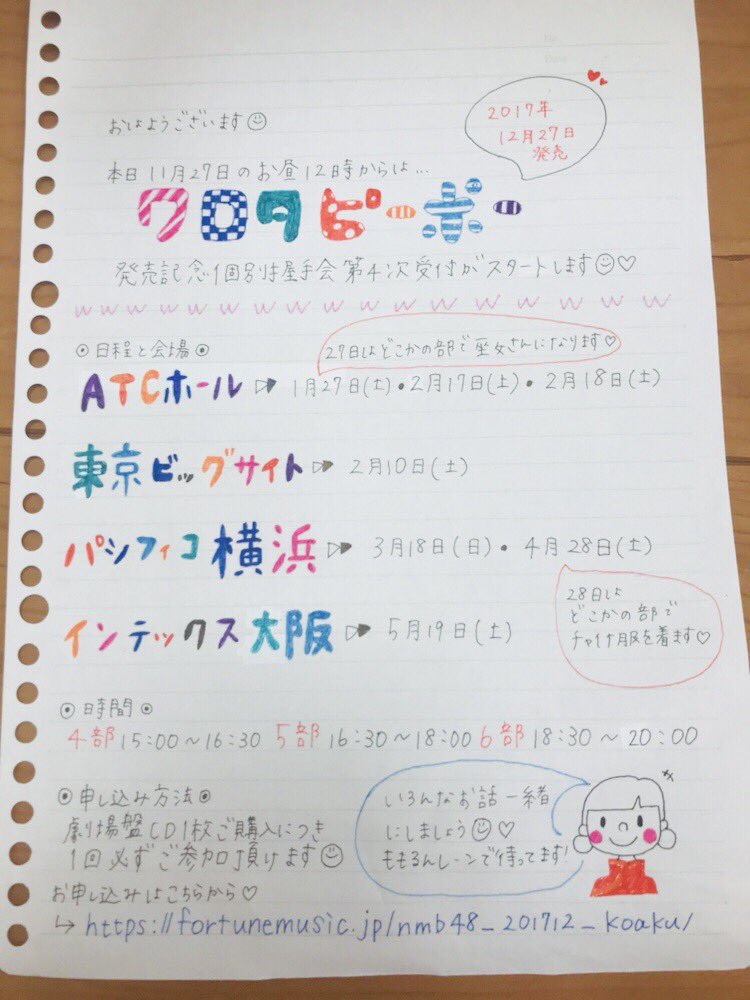 おはようございます☺
2017年
12月27日
発売
本日11月27日のお昼12時からは…
ワロタピーポー
発売記念個別握手会第4次受付がスタートします☺♡
wwwwwwwwwwwwwwwwwwwww
◎日程と会場◎
27日はどこかの部で座女さんになります♡
ATCホール ▷ 1月27日(土)・2月17日(土)・2月18日(土)
東京ビッグサイト ▷ 2月10日(土)
パシフィコ横浜 ▷ 3月18日(日)・4月28日(土)
28日は
どこかの部で
チャイナ服を着ます♡
インテックス大阪 ▷ 5月19日(土)
◎時間◎
4部 15:00～16:30 5部 16:30～18:00 6部 18:30～20:00
◎申し込み方法◎
劇場盤CD1枚ご購入につき
1回必ずご参加頂けます☺
お申し込みはこちらから♡
↳ https://fortunemusic.jp/nmb48_201712_koaku/
いろんなお話一緒
にしましょう☺♡
ももるんレーンで待ってます!